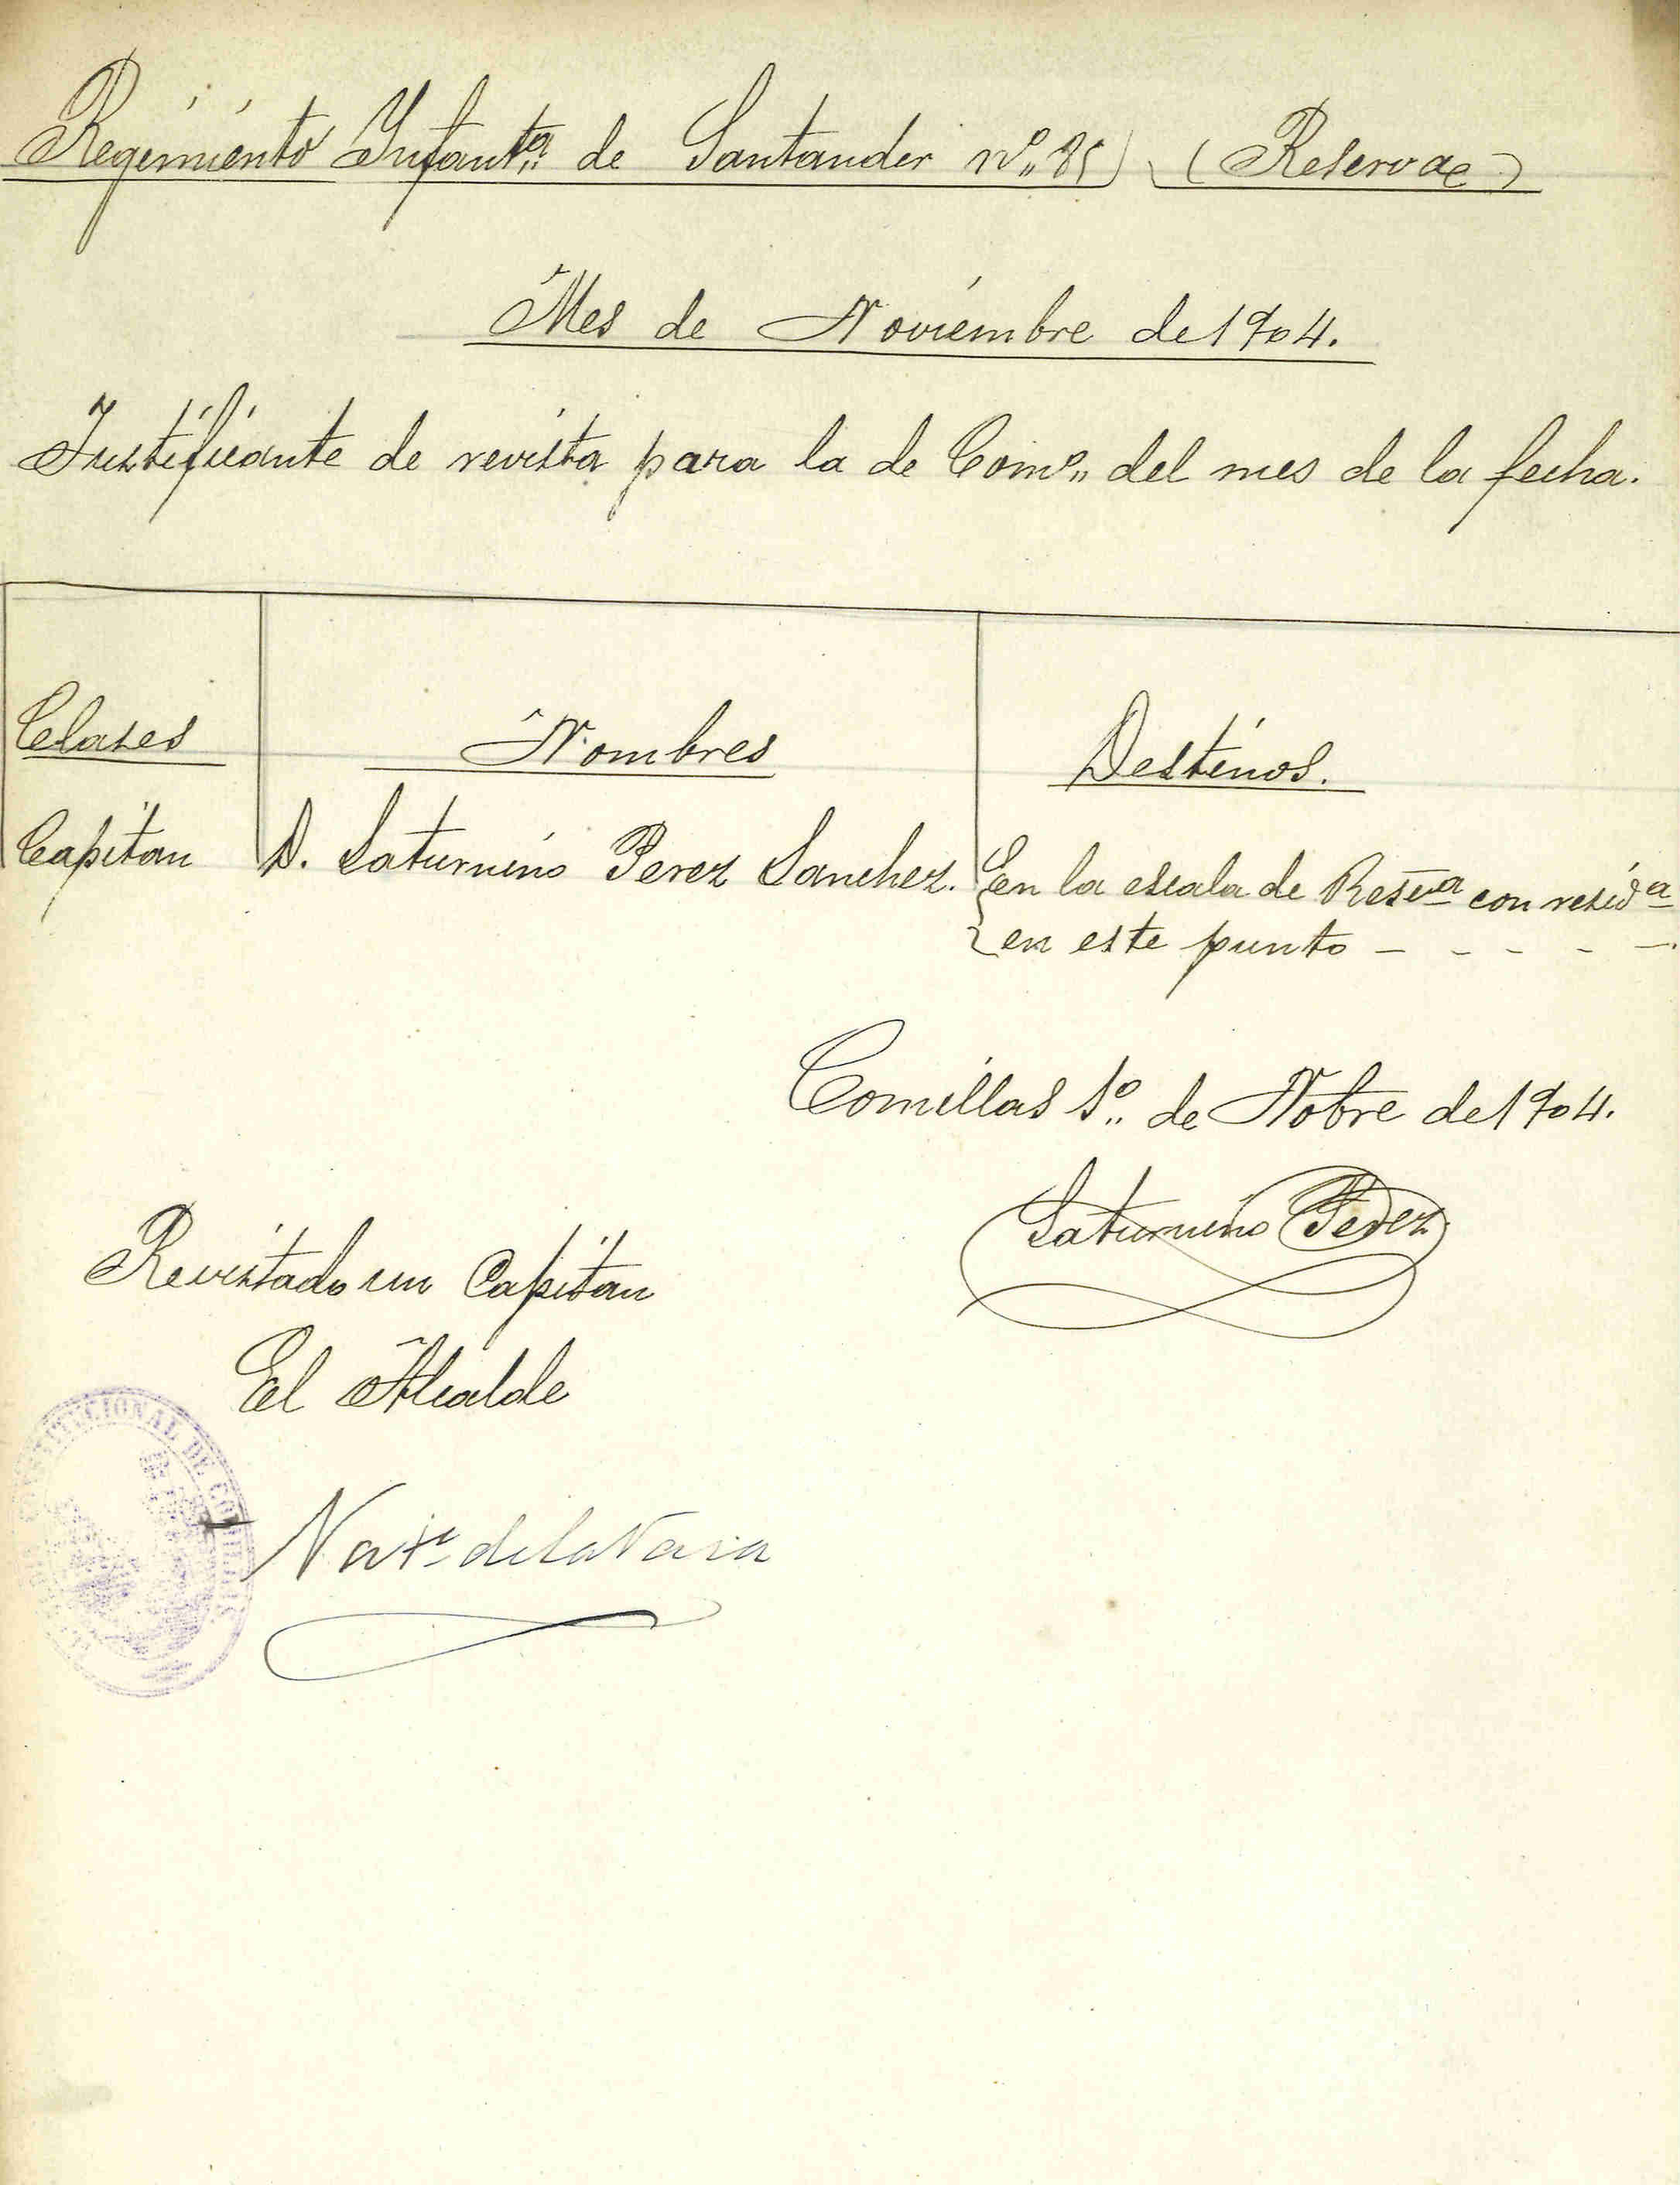 Regimiento Infantª de Santander nº 85 (Reserva)
Mes de Noviembre de 1904.
Justificante de revista para la de Comº del mes de la fecha.
Clases Nombres Destinos.
Capitan D. Saturnino Perez Sanchez. En la escala de Resvª con residª
en este punto - - - - -.
Comillas 1º de Nobre de 1904.
Saturnino Perez
Revistado un Capitan
El Alcalde
CONSTITUCIONAL DE COMILLAS
de la Vara